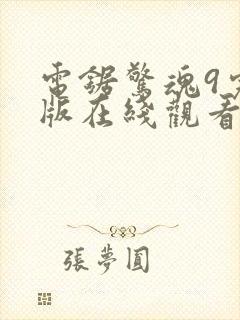 電鋸驚魂9
版在綫觀看
張夢圓